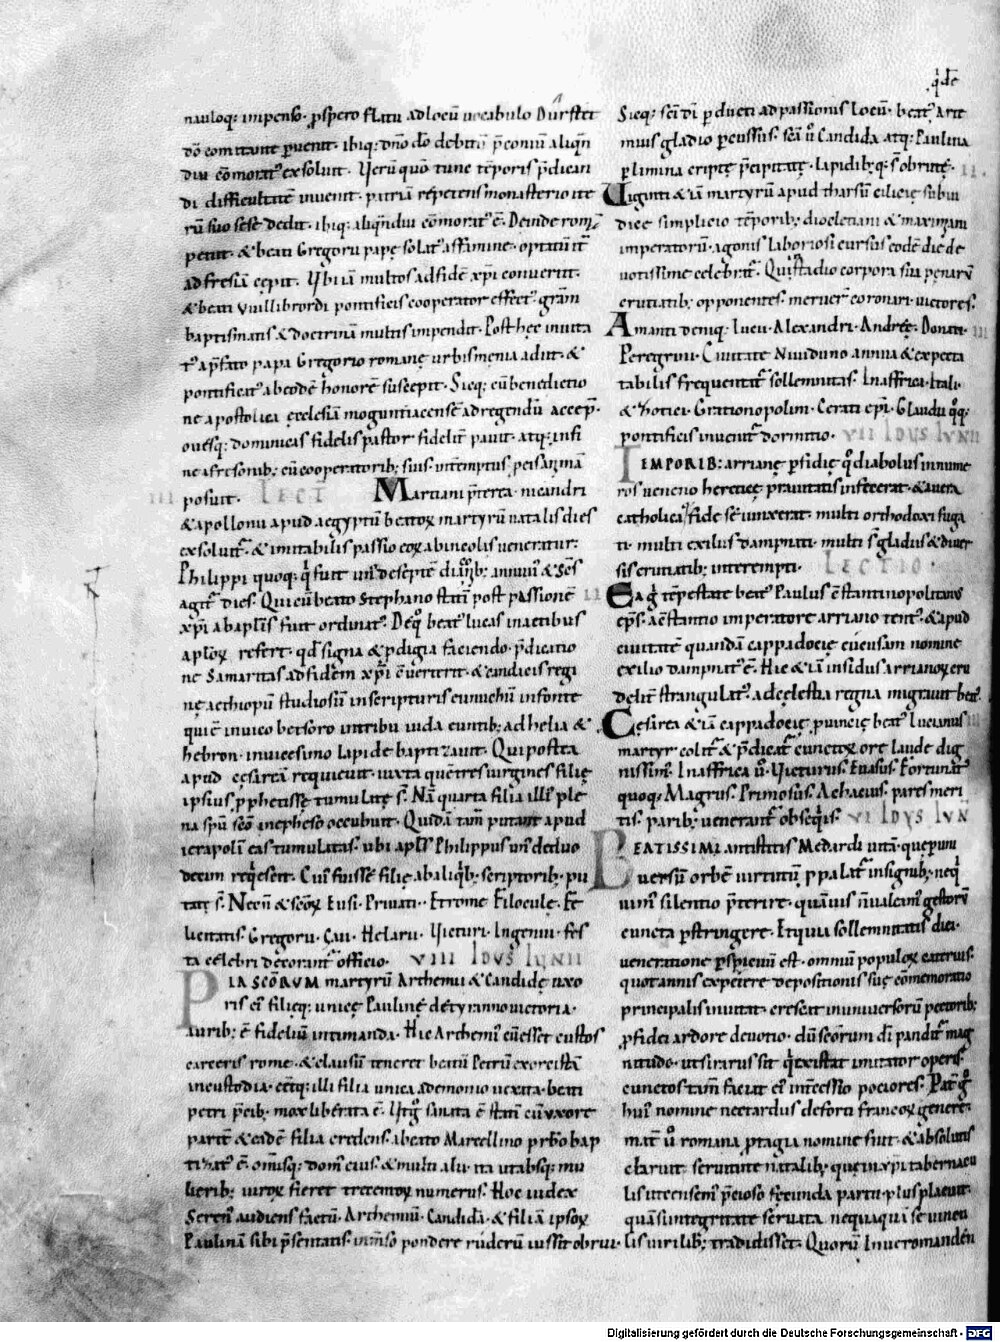 nauloq; impenso. ꝓspero flatu ad locū uocabulo Dūrstet
dō comitante ꝑuenit. ibiq; dn̄o dō debitū p̄coniū aliqn̄
diu cōmorat᾽ exsoluit. Verū quō tunc tēporis p̄dican
di difficultatē inuenit. patriā repetens monasterio ite
rū suo sese dedit. ibiq; aliqn̄diu cōmorat᾽ ē. Deinde romā
petiit. & beati Gregorii papę solat᾽ affamine. optatū it̄
ad fresiā cępit. Vbi iā multos ad fidē xp̄i conuertit.
& beati Vuillibrordi pontificis cooperator effect᾽ gr̄am
baptismatis & doctrinā multis impendit. Post hęc inuita
t᾽ a p̄fato papa Gregorio romanę urbis męnia adiit. &
pontificat᾽ ab eodē honorē suscepit. Sicq; cū benedictio
ne apostolica ęcclesiā moguntiacensē ad regendū accep̄.
ouesq; dominicas fidelis pastor fidelit̄ pauit. atq; in fi
ne a fresonib; cū cooperatorib; suis. intēptus pcis animā
posuit. Lect̄ Marciani p̄terea. nicandri
& apollonii apud aegyptū beatoꝝ martyrū natalis dies
exsoluit᷑. & imitabilis passio eoꝝ ab incolis ueneratur:
Philippi quoq; qͥ fuit un᾽ de septē diaconib; annuū & sēs
agit᷑ dies. Qui cū beato Stephano statī post passionē
xp̄i ab aplīs fuit ordinat᾽. De qͦ beat᾽ lucas in actibus
aplōꝝ refert. qd̄ signa & ꝓdigia faciendo. p̄dicatio
ne Samaritas ad fidem xp̄i cōuerterit. & candacis regi
nę aethiopū studiosū in scripturis eunuchū in fonte
qui ē in uico bethsoro in tribu iuda euntib; ad helia &
hebron. in uicesimo lapide baptizauit. Qui postea
apud cęsareā requieuit. iuxta quē tres uirgines filię
ipsius ꝓphetissę tumulatę s̄. Nā quarta filia illi᾽ ple
na sp̄u sc̄o in epheso occubuit. Quidā tam̄ putant apud
ierapolī eas tumulatas. ubi apl᾽s Philippus um̄ de duo
decim reqͥescit. Cui᾽ fuisse filię ab aliqͥb; scriptorib; pu
tatę s̄. Necn̄ & sc̄oꝝ Eusi. Priuati. Etrome Filocule. Fe
licitatis. Gregorii. Gaii. Helarii. Victuri. Ingenui. fes
ta celebri decorant᷑ officio. VIII IDVS IVNII
PIA SCŌRVM martyrū Arthemii & Candidę uxo
ris ei᾽ filięq; unicę Paulinę de tyranno uictoria.
aurib; ē fideliū intimanda. Hic Arthemi᾽ cū esset custos
carceris romę. & clausū teneret beatū Petrū exorcistā
in custodia. cēq; illi filia unica a demonio uexata. beati
petri p̄cib; mox liberata ē. Vt ḡ sanata ē statī cū uxore
pariē & eadē filia credens. a beato Marcellino prb̄ro bap
tizat᾽ ē. om̄isq; dom᾽ eius. & multi alii. ita ut absq; mu
lierib; uiroꝝ fieret trecentoꝝ numerus. Hoc iudex
Seren᾽ audiens factū. Arthemiū. Candidā. & filiā ipsoꝝ
Paulinā sibi p̄sentatis. inm̄so pondere ruderū iussit obrui.
Sicq; sc̄i dī ꝑducti ad passionis locū. beat᾽ Arte
mius gladio ꝑcussus. sc̄a ū Candida atq; Paulina
ꝑ limina criptę p̄cipitatę. lapidib; qͣ s̄ obrutę.
Viginti & iā martyrū apud tharsū cilicię sub iu
dice simplicio tēporib; diocletiani & maximiani
imperatorū. agonis laboriosi cursus eodē die de
uotissime celebrat᷑. Qui stadio corpora sua penarū
cruciatib; opponentes. meruer̄ coronari uictores.
Amanti deniq; lucii. Alexandri. Andręę. Donati.
Peregrini. Ciuitate Niuiduno annua & expecta
tabilis frequentat᷑ sollemnitas. In affrica. itali
& notici. Grationopolim. Cerati ep̄i. Glaudii qͦq;
pontificis inuenit᷑ dormitio. VII IDVS IVNII
TEMPORIB; arrianę ꝑfidię qͦ diabolus innume
ros ueneno hereticę prauitatis infecerat. & a uera
catholica fide seiunxerat. multi orthodoxi fuga
ti. multi exiliis dampnati. multi s̄ gladiis & diuer
sis cruciatib; interempti. Lectio.
Ea ḡ tēpestate beat᾽ Paulus cōstantinopolitanus
ep̄s. a cōstantio imperatore arriano tent᾽. & apud
ciuitatē quandā cappadocię cucusam nomine
exilio dampnat᾽ ē. Hic & iā insidiis arrianoꝝ cru
delit̄ strangulat᾽. ad cęlestia regna migrauit beat᾽.
Cęsarea & iā cappadocię prouincię beat᾽ lucianus
martyr colit᷑ & p̄dicat᷑ cunctoꝝ ore laude dig
nissim᾽. In affrica ū. Victurus. Euasus. Fortunat᾽
quoq; Magrus. Primosus. Achacius. pares meri
tis. parib; uenerant᷑ obseqͥis. VI IDVS IVN
BEATISSIMI antistitis Medardi uitā. quę p uni
uersū orbē uirtutū ꝓpalat᷑ insignib; neq
uim᾽ silentio p̄terire. quāuis n̄ ualeam᾽ gestorū
cuncta ꝑstringere. Et qui sollemnitatis diei.
ueneratione ꝑspicuū est. omniū populoꝝ cateruis.
quotannis expetere depositionis suę cōmemoratio
principalis inuitat. crescit in uniuersorū pectorib;
ꝓ fidei ardore deuotio. dū scōrum dī pandit᷑ mag
nitudo. ut si rarus sit qͥ existat imitator operis.
cunctos tam̄ faciat ei᾽ int̄cessio pociores. Pat̄ ḡ
hui᾽ nomine nectardus de forti francoꝝ genere.
mat̄ ū romana protagia nomine fuit. & absolutis
claruit seruitute natalib; que in xp̄i tabernacu
lis ut censem᾽ p̄cioso fecunda partu. plus placuit.
quā si integritate seruata nequaquā se uincu
lis uirilib; tradidisset. Quorū In ueromanden̄